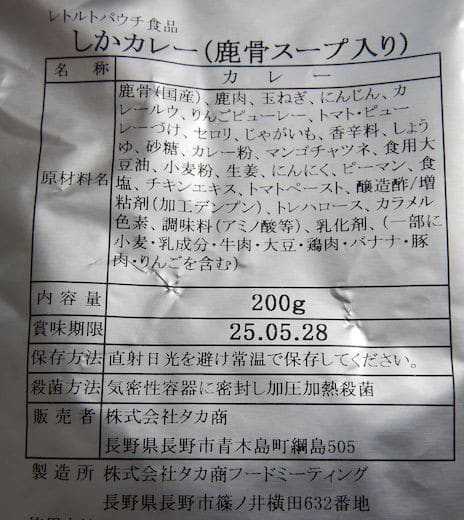 レトルトパウチ食品
しかカレー(鹿骨スープ入り)
名称 カレー
原材料名 鹿骨(国産)、鹿肉、玉ねぎ、にんじん、カ
レールウ、りんごピューレー、トマト・ピュー
レーづけ、セロリ、じゃがいも、香辛料、しょう
ゆ、砂糖、カレー粉、マンゴチャツネ、食用大
豆油、小麦粉、生姜、にんにく、ピーマン、食
塩、チキンエキス、トマトペースト、醸造酢/増
粘剤(加工デンプン)、トレハロース、カラメル
色素、調味料(アミノ酸等)、乳化剤、(一部に
小麦・乳成分・牛肉・大豆・鶏肉・バナナ・豚
肉・りんごを含む)
内容量 200g
賞味期限 25.05.28
保存方法 直射日光を避け常温で保存してください。
殺菌方法 気密性容器に密封し加圧加熱殺菌
販売者 株式会社タカ商
長野県長野市青木島町綱島505
製造所 株式会社タカ商フードミーティング
長野県長野市篠ノ井横田632番地